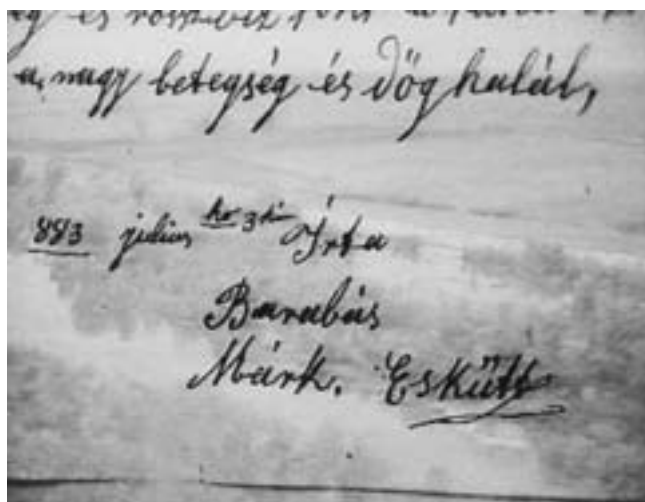 és rosszvíz
a, nagy betegség és döghalál,
883 julius hó 3kán Írta
Barabás
Márk. Eskütt